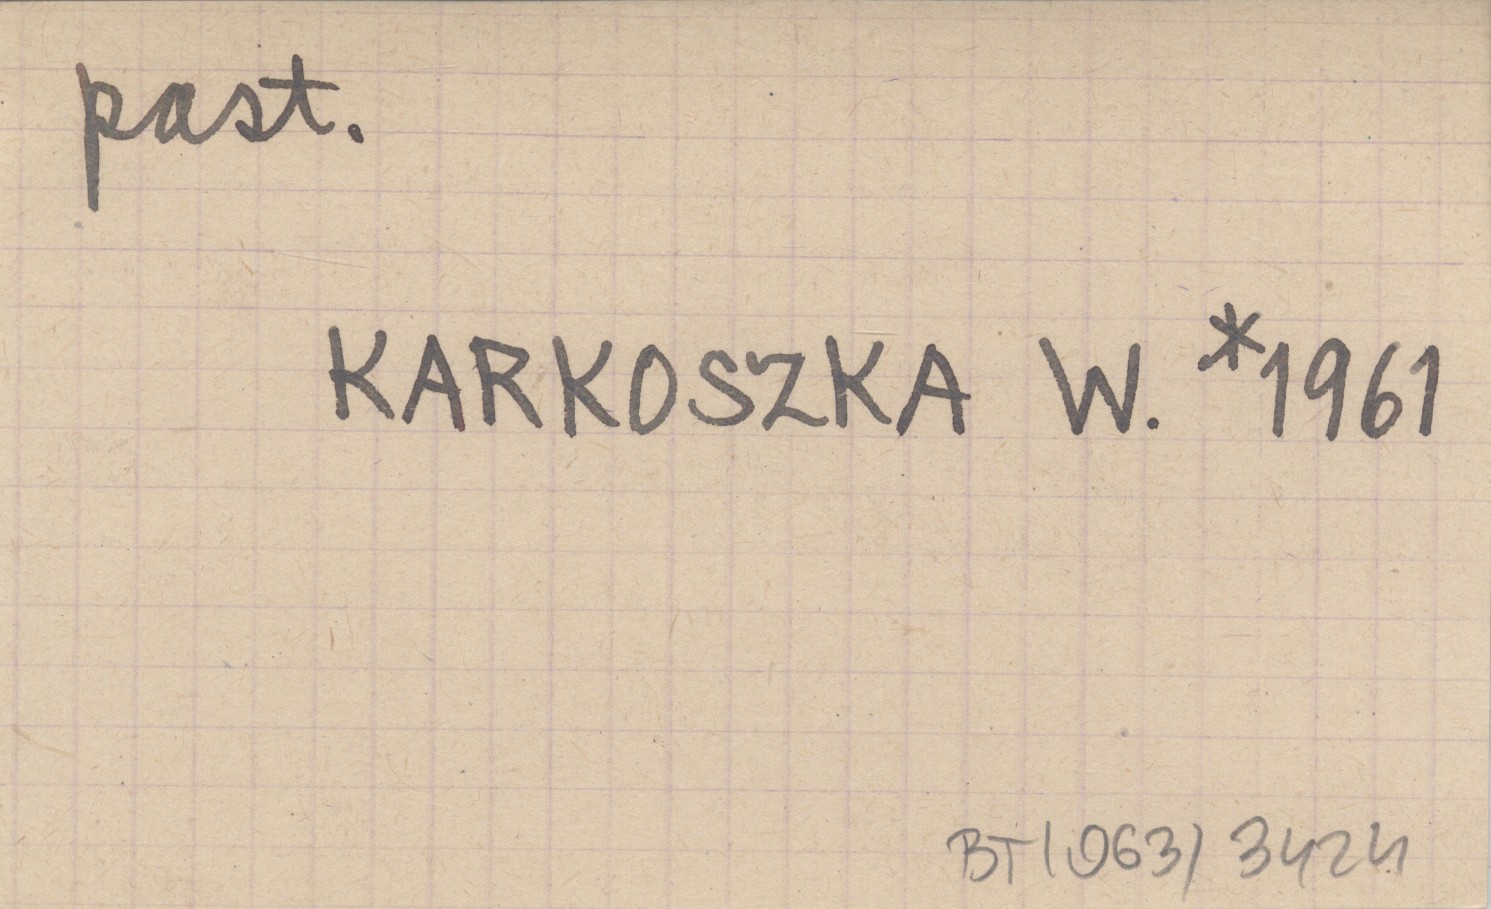 past.
KARKOSZKA W. *1961
BT (063) 3424